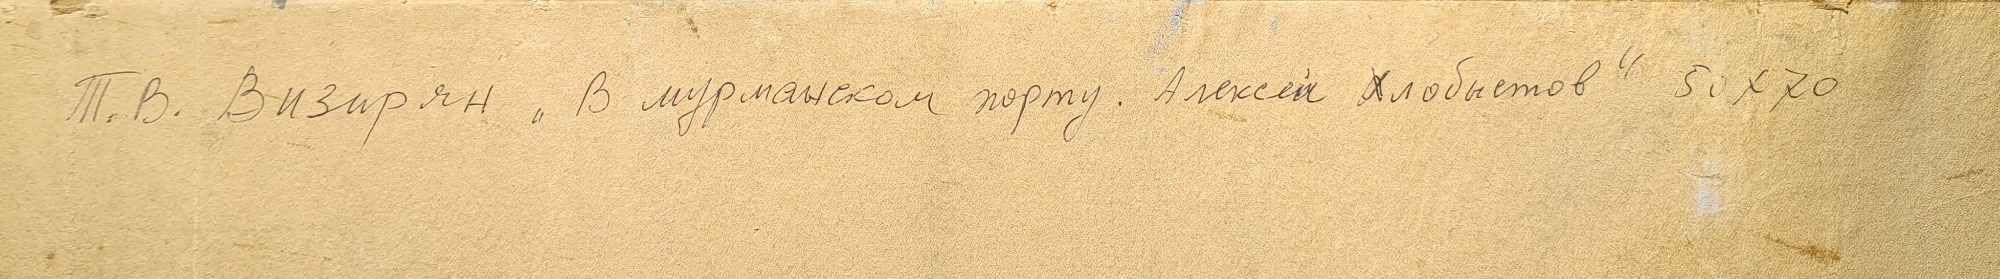 Т.В. Визирян „В мурманском порту. Алексей Хлобыстов“ 50х70